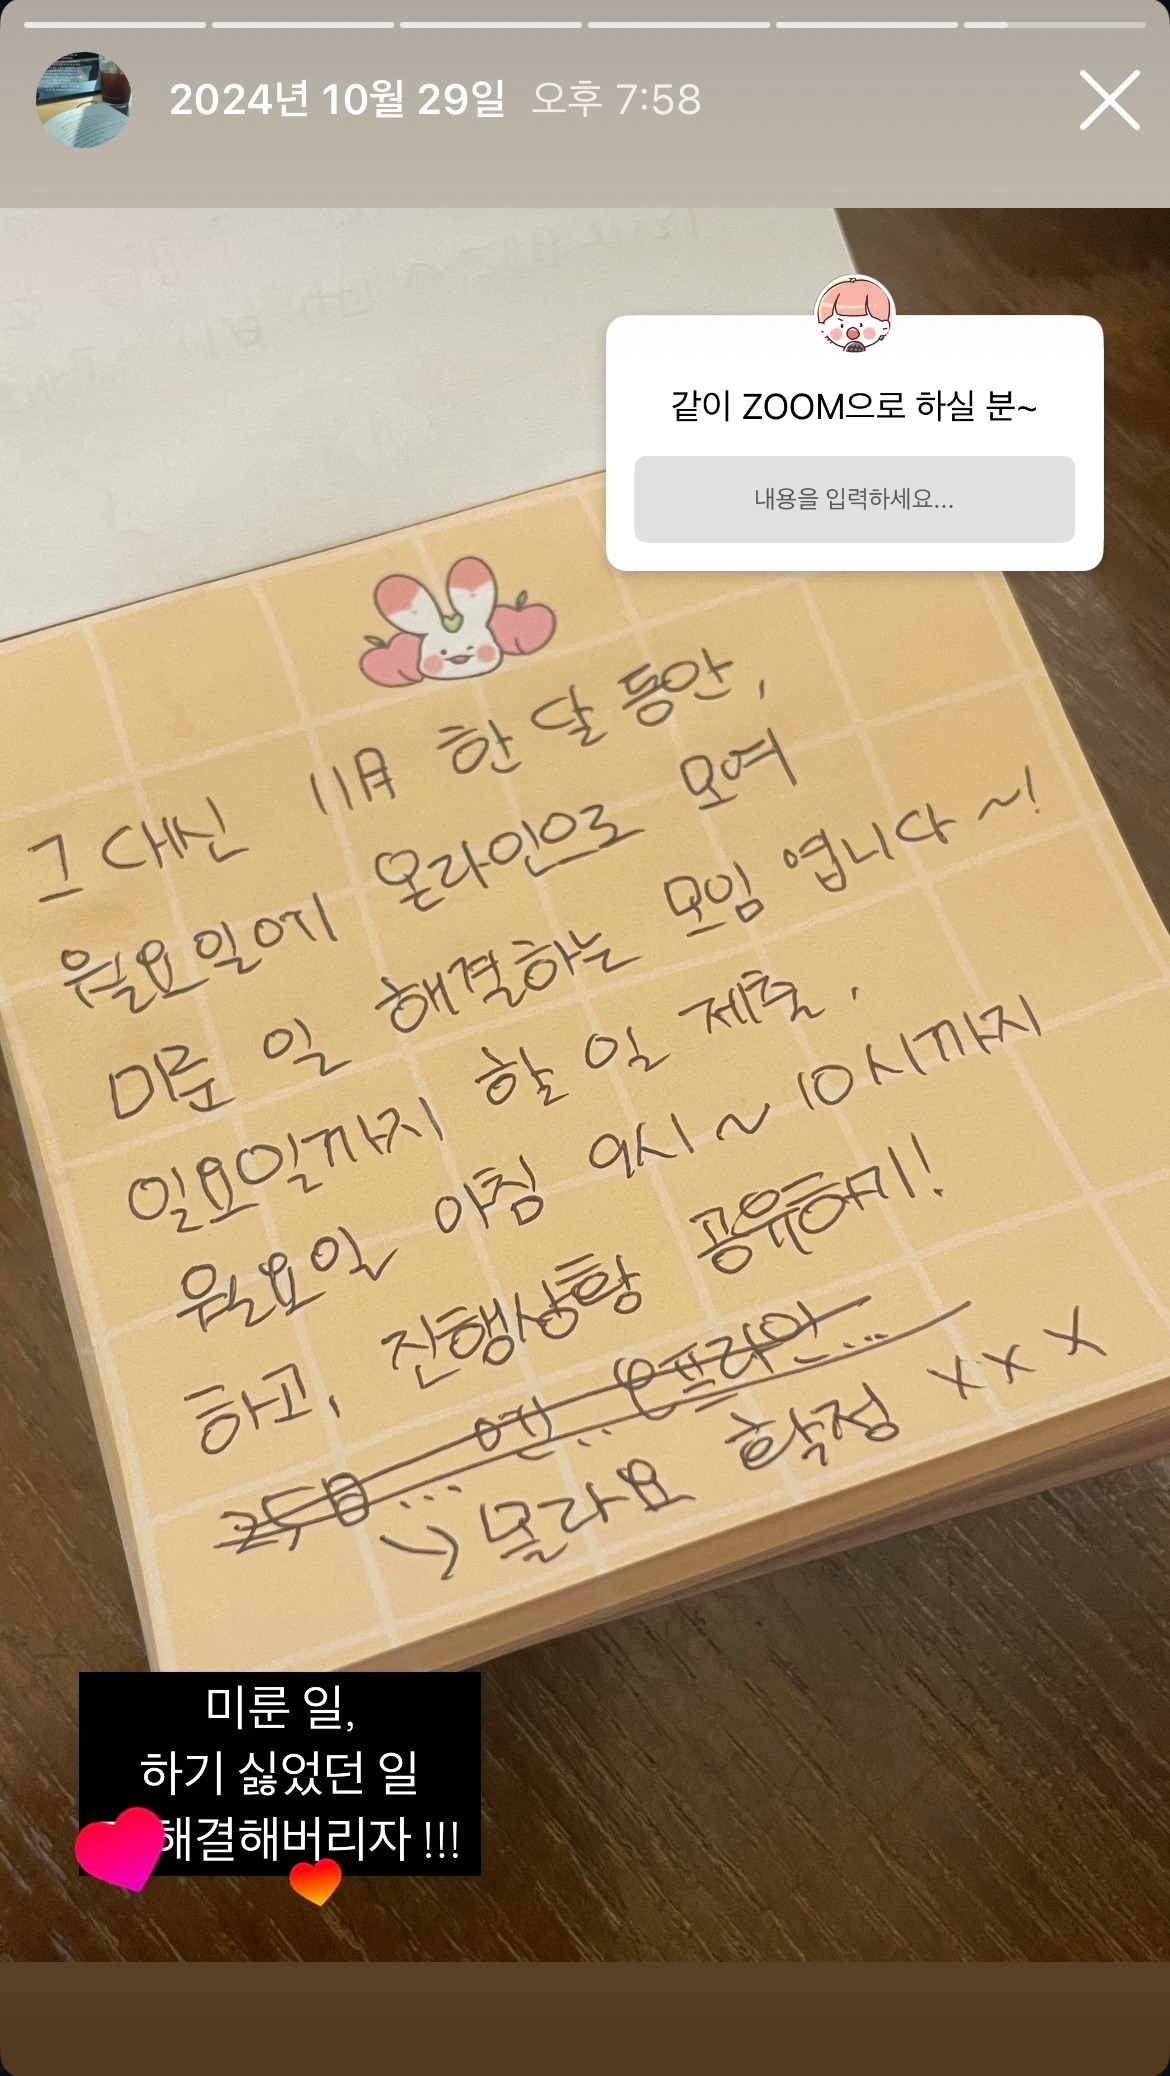 2024년 10월 29일 오후 7:58
같이 ZOOM으로 하실 분~
내용을 입력하세요...
그 대신 11月 한 달 동안,
월요일에 온라인으로 모여
미룬 일 해결하는 모임 엽니다~!
일요일까지 할 일 제출.
월요일 아침 9시~10시까지
하고, 진행상황 공유하기!
엔 오프라인...
→ 몰라요 확정 x x x
미룬 일,
하기 싫었던 일
해결해버리자 !!!